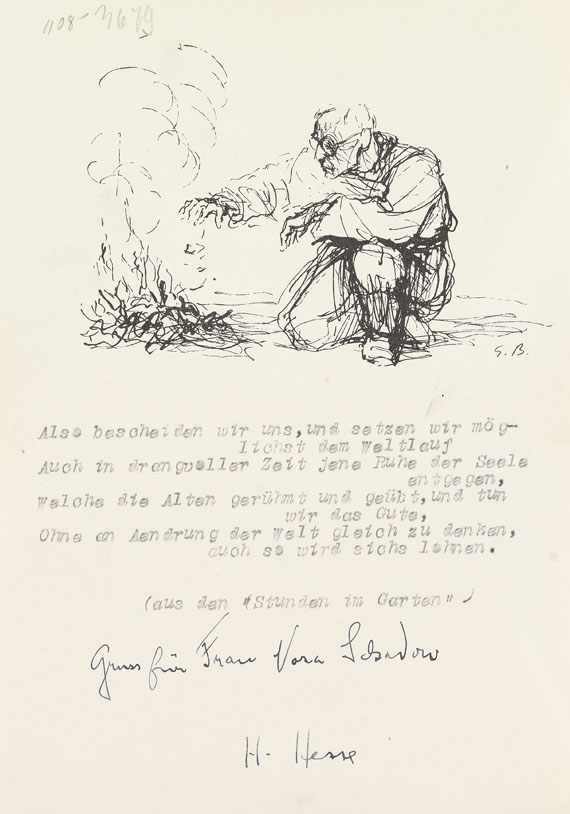 1108-3679
G. B.
Also bescheiden wir uns,und setzen wir mög-
lichst dem Weltlauf
Auch in drangvoller Zeit jene Ruhe der Seele
entgegen,
Welche die Alten gerühmt und geübt,und tun
wir das Gute,
Ohne an Aendrung der Welt gleich zu denken,
auch so wird sichs lohnen.
(aus den "Stunden im Garten" )
Gruss für Frau Vera Schadow
H. Hesse